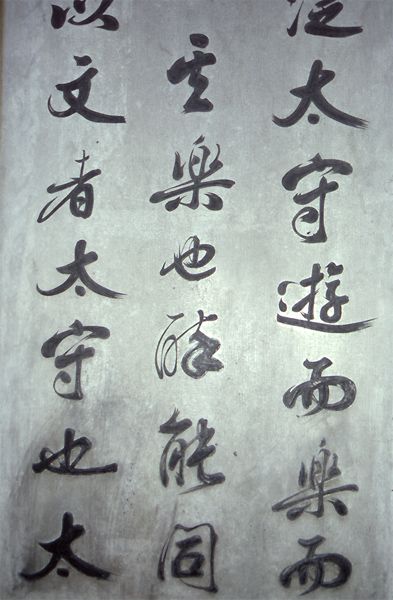 太守遊而樂而
其樂也醉能同
以文者太守也太